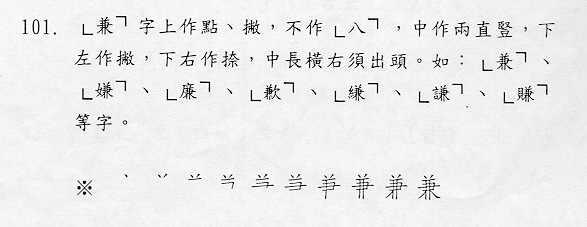 101. 「兼」字上作點、撇,不作「八」,中作兩直豎,下
左作撇,下右作捺,中長橫右須出頭。如:「兼」、
「嫌」、「廉」、「歉」、「縑」、「謙」、「賺」
等字。
※ 兼